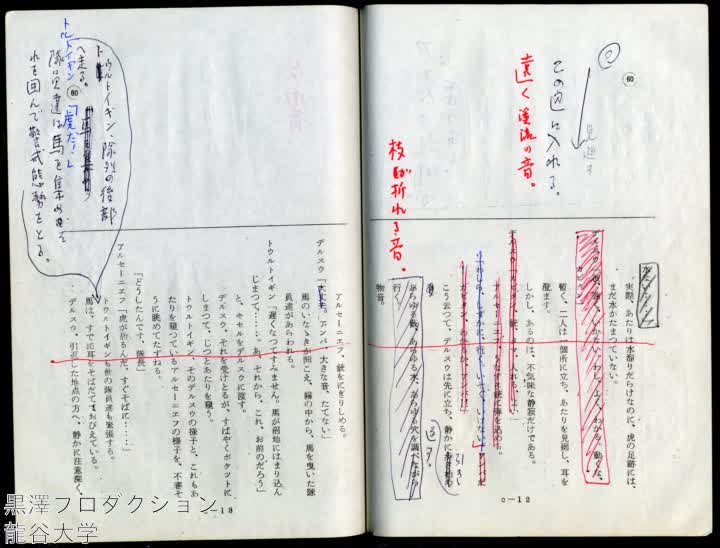 60
この辺に入れる。
遠く渓流の音。
枝が折れる音。
実際、あたりは水溜りだらけなのに、虎の足跡には、
まだ水がたまつていない。
カピタン
暫く、二人は一個所に立ち、あたりを見廻し、耳を
配ます。
しかし、あるのは、不気味な静寂だけである。
アルセーニエフ、うなずき銃に弾を込める。
こう云つて、デルスウは先に立ち、静かに
あらゆる藪、あらゆる木、あらゆる穴を調べながら
行く。
物音。
c—12
トゥルトイギン、隊列の後部
へ走る。
トルトイギン「虎だ！」
60
隊員達は馬を集め
れを囲んで警戒態勢をとる。
アルセーニエフ、銃をにぎりしめる。
デルスウ「大丈夫。アンバ、大きな音、たてない」
馬のいななきが聞こえ、霧の中から、馬を曳いた隊
員達があらわれる。
トウルトイギン「遅くなつてすみません。馬が沼地にはまり込ん
じまつて、……。あ、それから、これ、お前のだろう」
と、キセルをデルスウに渡す。
デルスウ、それを受けとるが、すばやくポケットに
しまつて、じつとあたりを窺う。
トウルトイギン、そのデルスウの様子と、これもあ
たりを窺つているアルセーニエフの様子を、不審そ
うに眺めてたずねる。
「どうしたんです、隊長」
アルセーニエフ「虎が居るんだ、すぐそばに……」
トウルトイギンも他の隊員達も緊張する。
馬は、すでに耳をそばだてておびえている。
デルスウ、引返した地点の方へ、静かに注意深く、
—13
黒澤プロダクション
龍谷大学